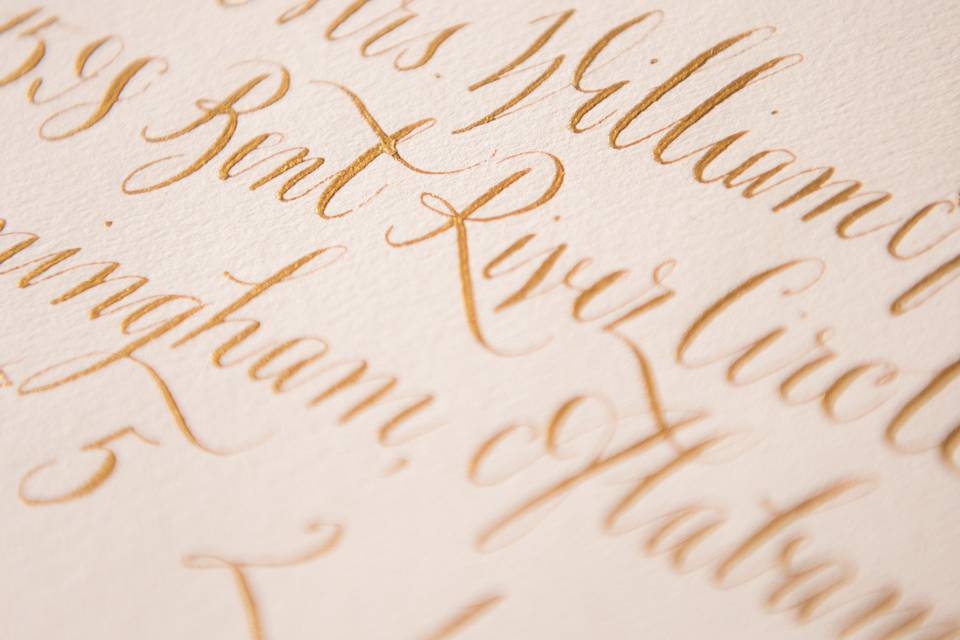 Mrs. William
Bent River Circl
mingham, Alabam
5